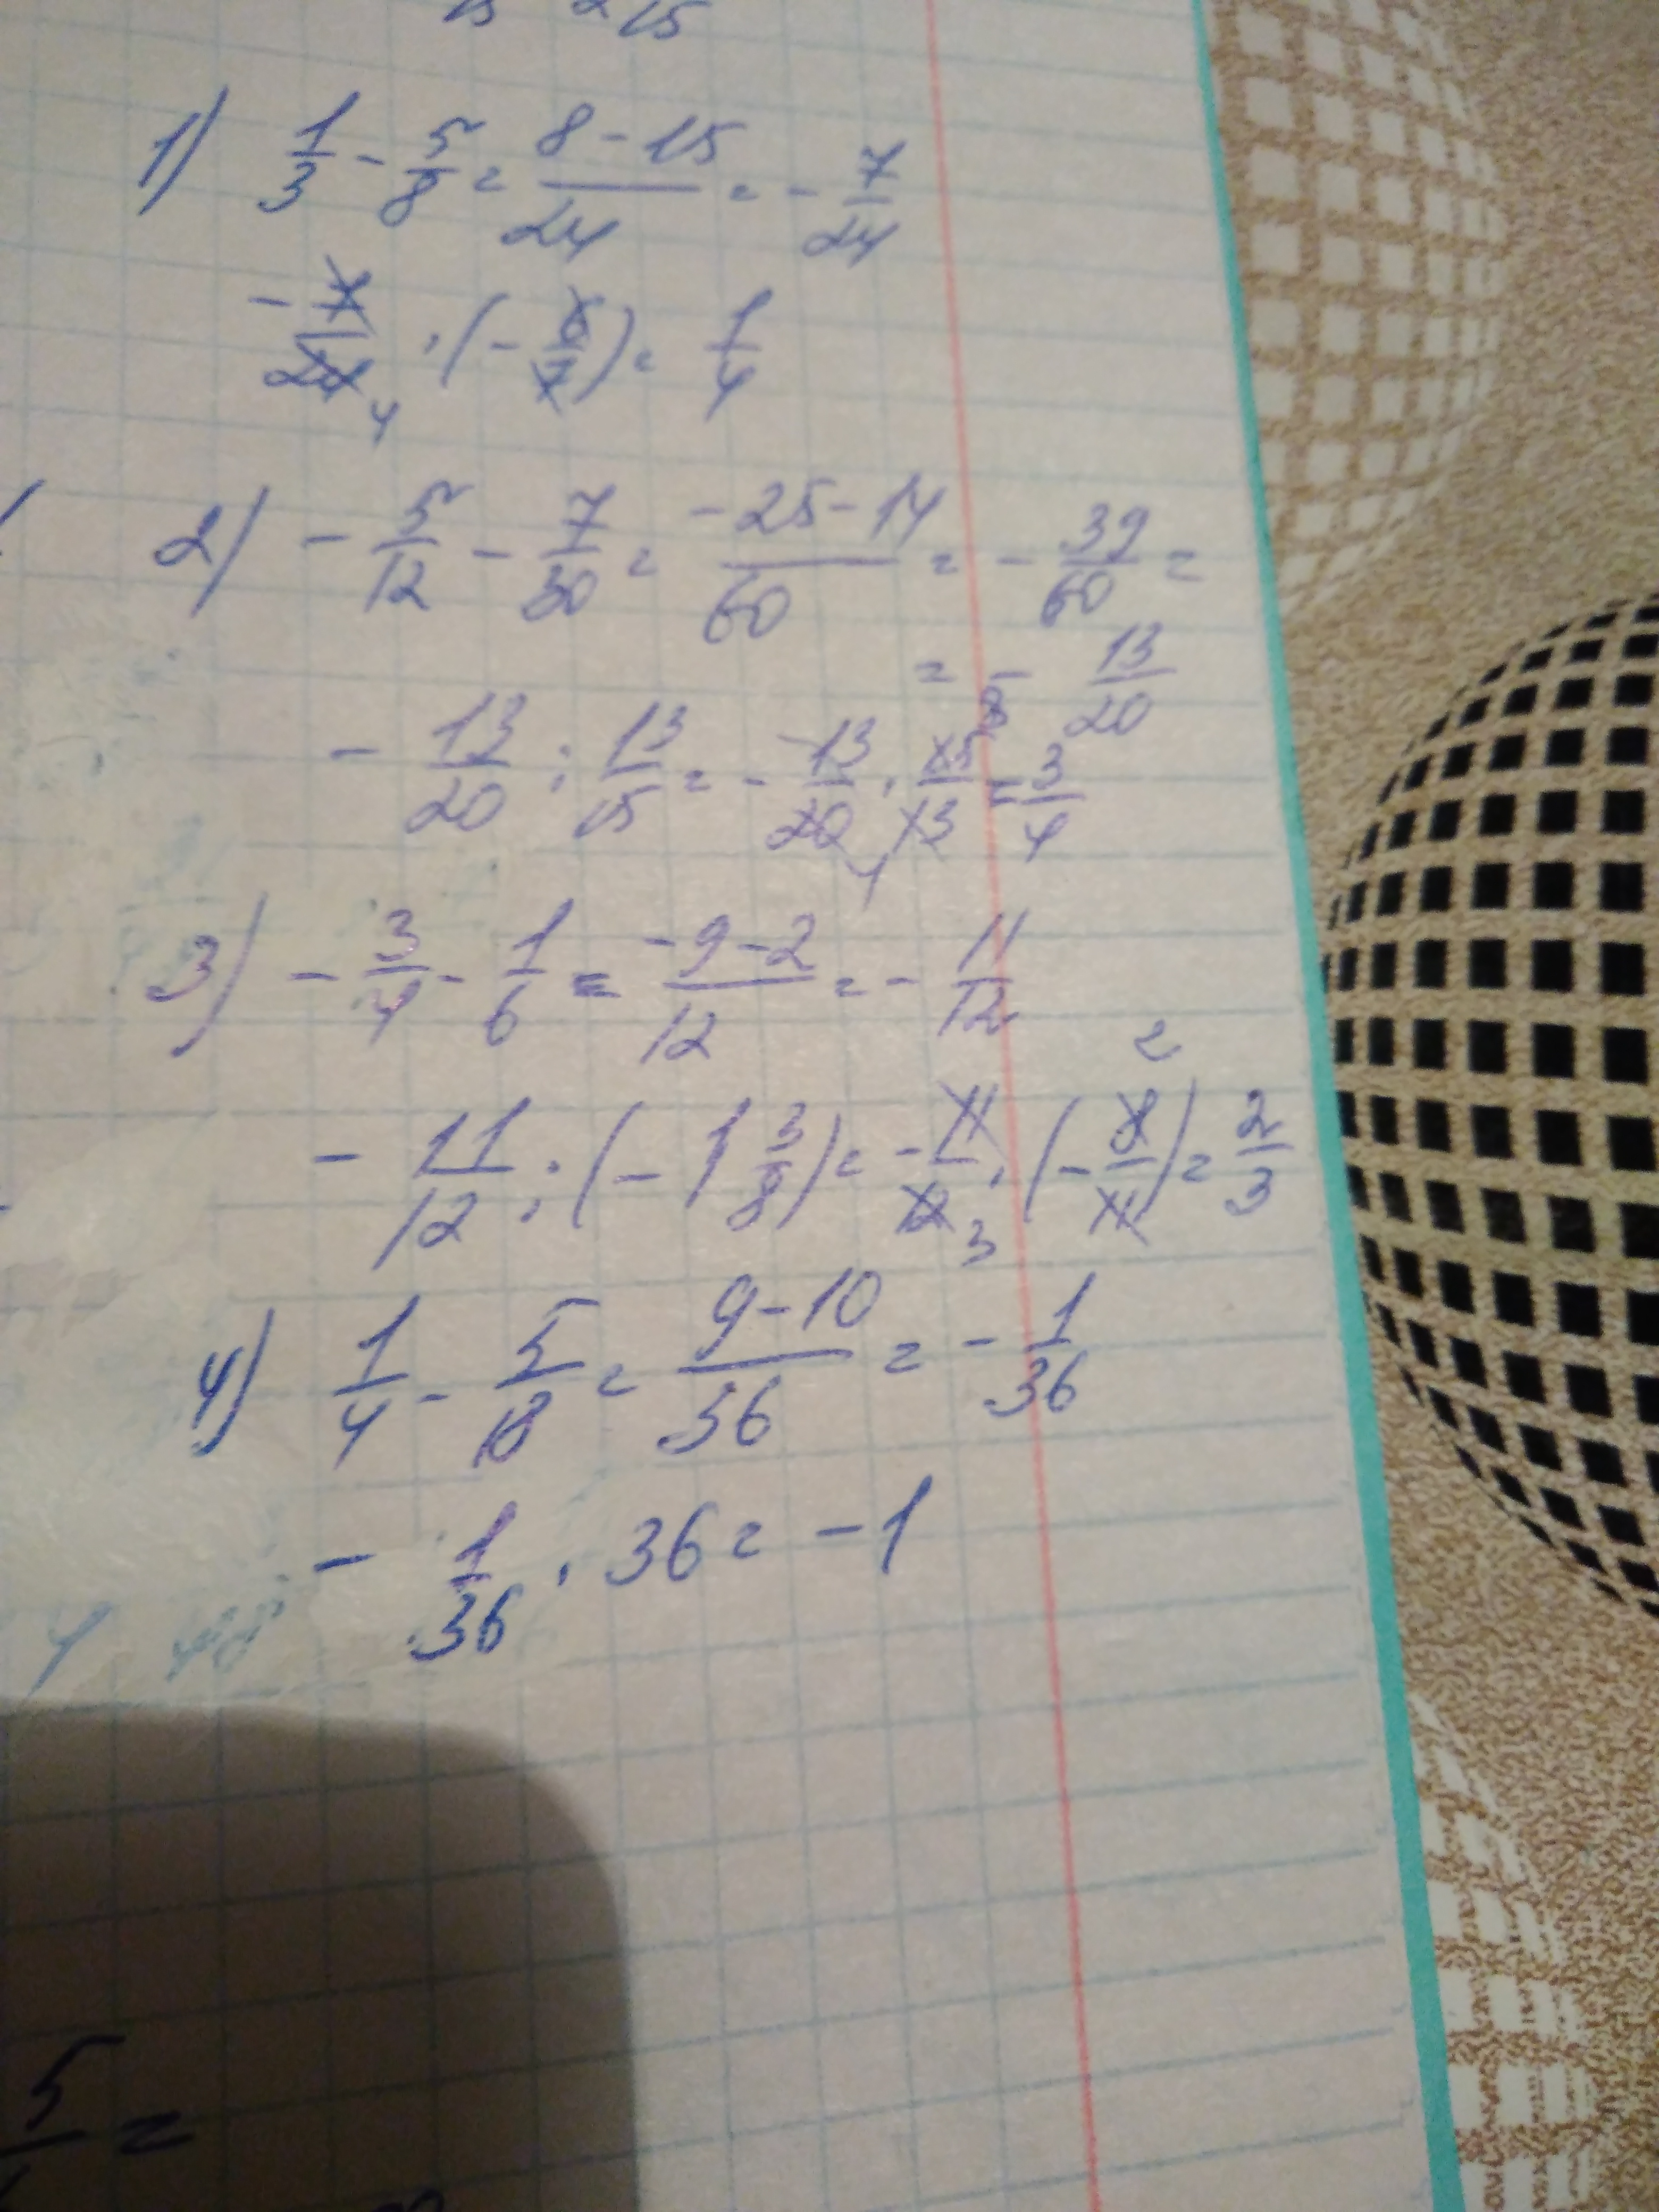 15 2 15
1) 1/3 - 5/8 = (8 - 15)/24 = - 7/24
- 7/24 4 · (- 6/7) = 1/4
2) - 5/12 - 7/30 = (-25 - 14)/60 = - 39/60 =
= - 13/20
- 13/20 : 13/15 = - 13/20 4 · 15/13 = 3/4
3) - 3/4 - 1/6 = (-9 - 2)/12 = - 11/12
- 11/12 : (- 1 3/8) = - 11/12 3 · (- 8/11) 2 = 2/3
4) 1/4 - 5/18 = (9 - 10)/36 = - 1/36
- 1/36 · 36 = -1
5
=